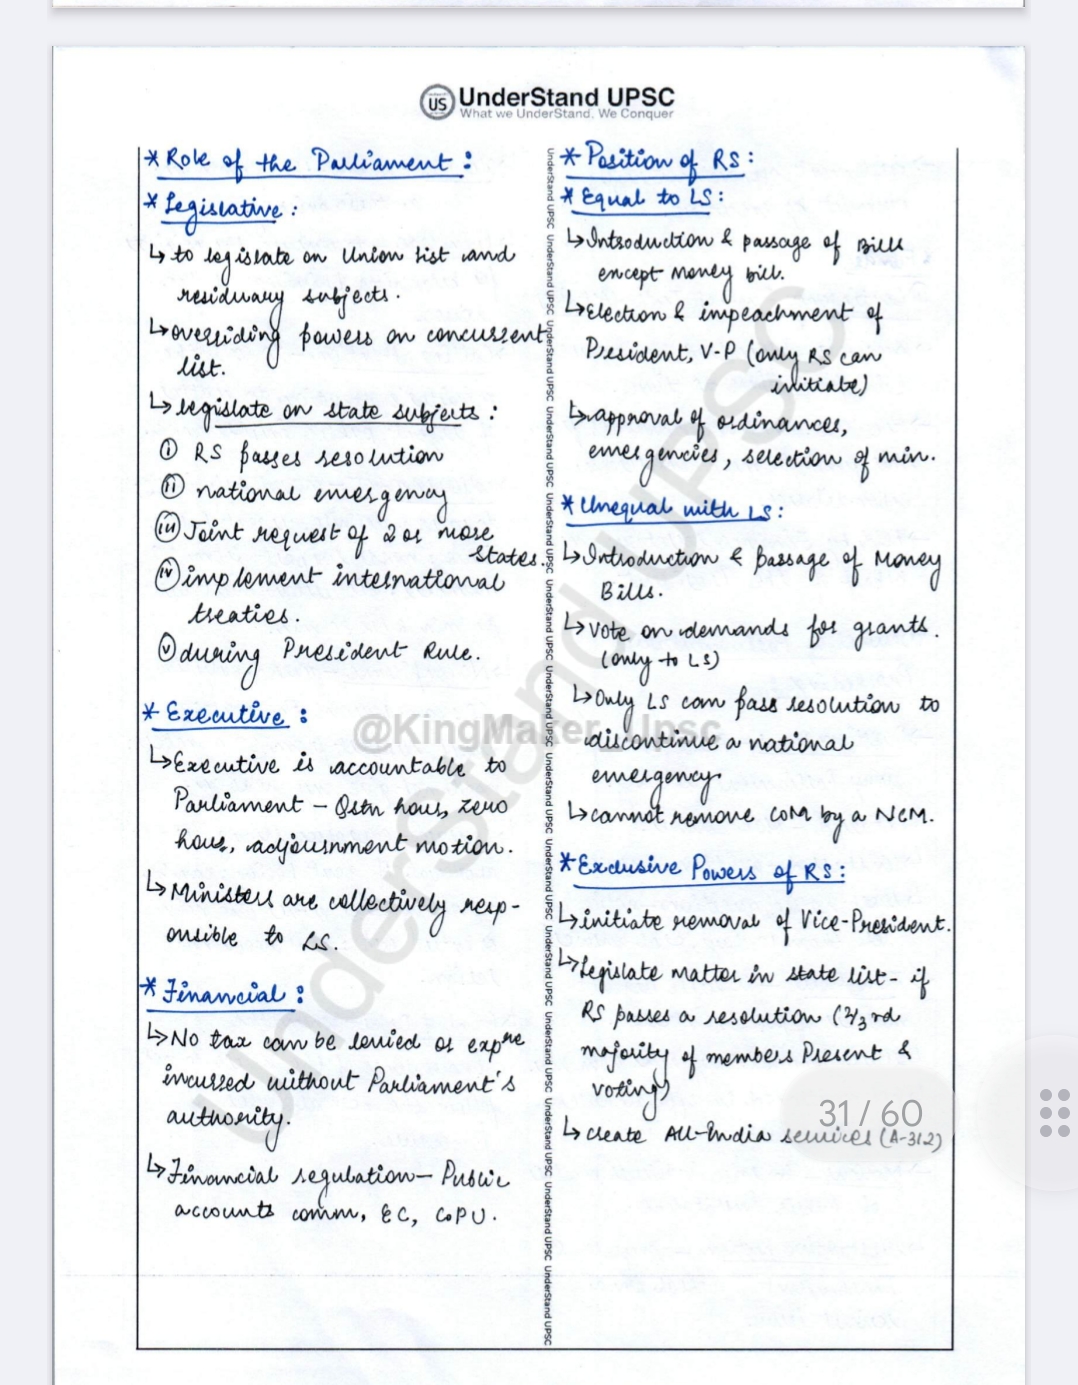 US UnderStand UPSC
What we UnderStand, We Conquer
* Role of the Parliament :
* Legislative :
↳ to legislate on Union list and
residuary subjects.
↳ overriding powers on concurrent
list.
↳ legislate on state subjects :
(i) RS passes resolution
(ii) national emergency
(iii) Joint request of 2 or more
States.
(iv) implement international
treaties.
(v) during President Rule.
* Executive :
↳ Executive is accountable to
Parliament – Qstn hour, zero
hour, adjournment motion.
↳ Ministers are collectively resp-
onsible to LS.
* Financial :
↳ No tax can be levied or expre
incurred without Parliament's
authority.
↳ Financial regulation – Public
accounts comm, EC, CoPU.
UnderStand UPSC UnderStand UPSC UnderStand UPSC UnderStand UPSC UnderStand UPSC UnderStand UPSC UnderStand UPSC UnderStand UPSC UnderStand UPSC UnderStand UPSC UnderStand UPSC UnderStand UPSC UnderStand UPSC UnderStand UPSC
* Position of RS :
* Equal to LS :
↳ Introduction & passage of Bills
except Money bill.
↳ Election & impeachment of
President, V-P (only RS can
initiate)
↳ approval of ordinances,
emergencies, selection of min.
* Unequal with LS :
↳ Introduction & Passage of Money
Bills.
↳ Vote on demands for grants.
(only to LS)
↳ Only LS can pass resolution to
discontinue a national
emergency.
↳ cannot remove COM by a NCM.
* Exclusive Powers of RS :
↳ initiate removal of Vice-President.
↳ Legislate matter in state list - if
RS passes a resolution (2/3 rd
majority of members Present &
voting)
↳ create All-India services (A-312)
@KingMaker_Upsc
UnderStand UPSC
31 / 60